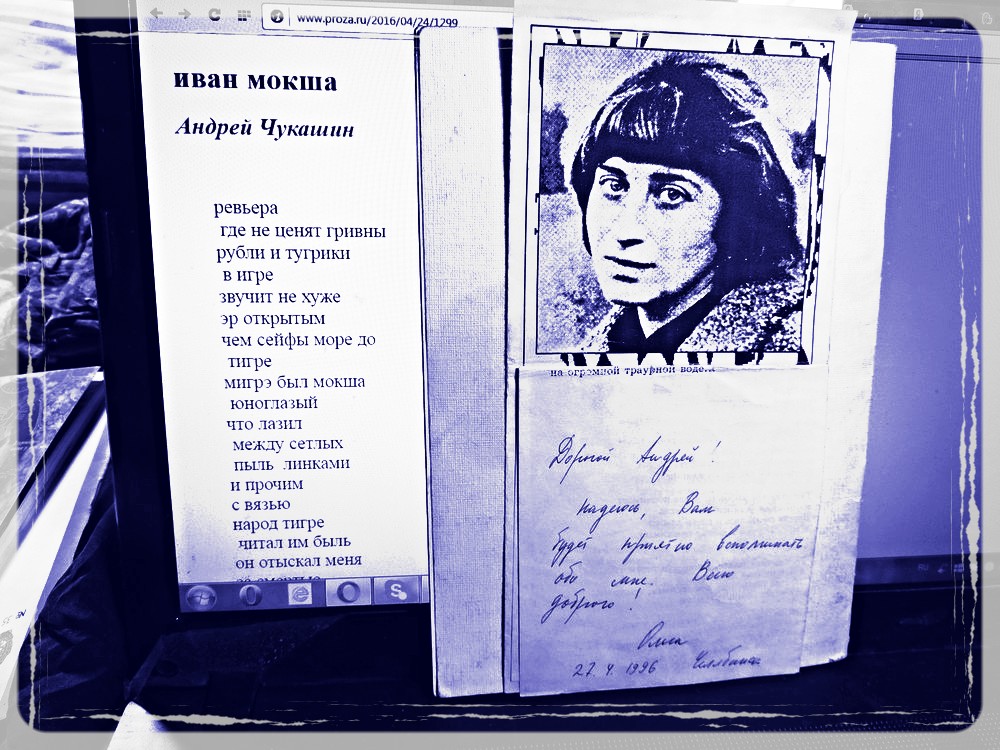 www.proza.ru/2016/04/24/1299
иван мокша
Андрей Чукашин
ревьера
где не ценят гривны
рубли и тугрики
в игре
звучит не хуже
эр открытым
чем сейфы море до
тигре
мигрэ был мокша
юноглазый
что лазил
между сетлых
пыль линками
и прочим
с вязью
народ тигре
читал им быль
он отыскал меня
за смертью
на огромной траурной воде...
Дорогой Андрей!
надеюсь, Вам
будет приятно вспоминать
обо мне. Всего
доброго!
27.4.1996 Челябинск